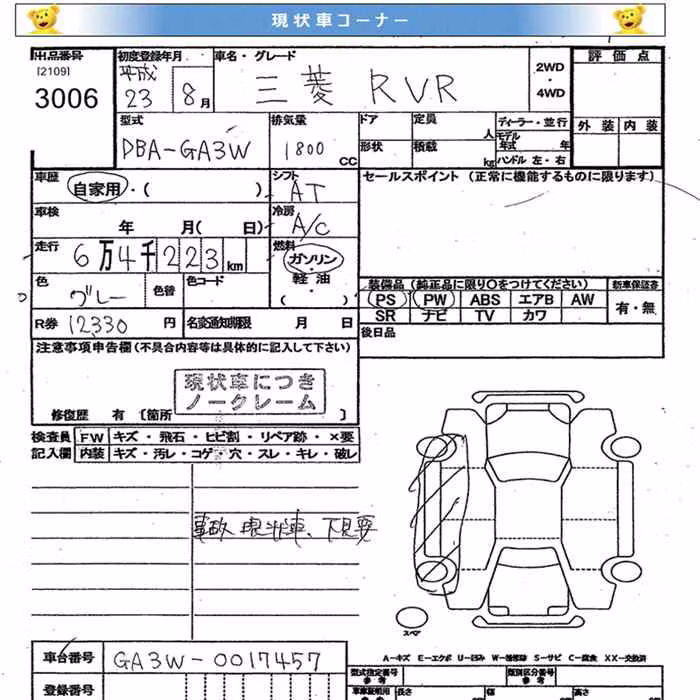 現状車コーナー
出品番号 初度登録年月 車名・グレード 2WD・4WD 評価点
[2109]
3006
平成23 8月
三菱 RVR
型式 排気量 ドア 定員 人 ディーラー・並行 外装 内装
DBA-GA3W 1800 CC
形状 積載 kg モデル年式 年
ハンドル 左・右
車歴 自家用・( ) シフト AT セールスポイント (正常に機能するものに限ります)
車検 年 月( 日) 冷房 A/C
走行 6万4千223km 燃料 ガソリン・軽油・( )
色 グレー 色替 色コード
装備品(純正品に限り○をつけてください) 新車保証書
PS PW ABS エアB AW 有・無
SR ナビ TV カワ
R券 12,330 円 名変通知期限 月 日 後日品
注意事項申告欄(不具合内容等は具体的に記入して下さい)
現状車につき
ノークレーム
修復歴 有 [箇所 ]
検査員 FW キズ・飛石・ヒビ割・リペア跡・×要
記入欄 内装 キズ・汚レ・コゲ・穴・スレ・キレ・破レ
事故現状車、下見要
スペア
A-キズ E-エクボ U-凹み W-補修跡 S-サビ C-腐食 XX-交換済
車台番号 GA3W-0017457
型式指定番号 参考 類別区分番号 参考
登録番号
長さ 幅 高さ